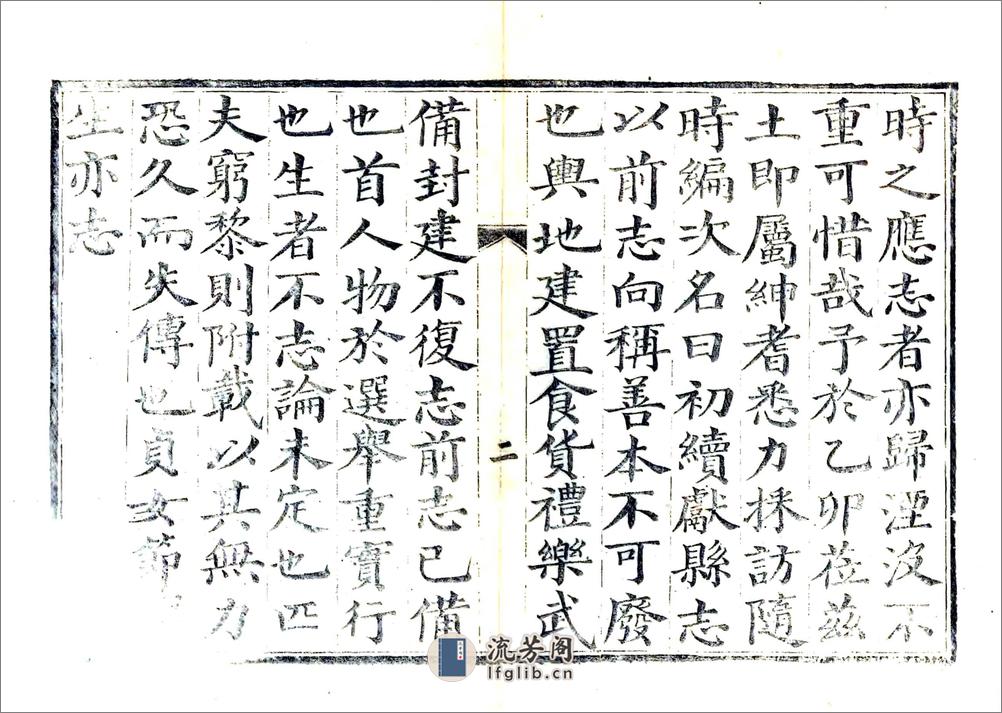 時之應志者亦歸湮沒不
重可惜哉予於乙卯莅茲
土即屬紳耆悉力採訪隨
時編次名曰初續獻縣志
以前志向稱善本不可廢
也輿地建置食貨禮樂武
二
備封建不復志前志已備
也首人物於選舉重實行
也生者不志論未定也匹
夫窮黎則附載以其無力
恐久而失傳也貞女節
生亦志
流芳阁
lfglib.cn